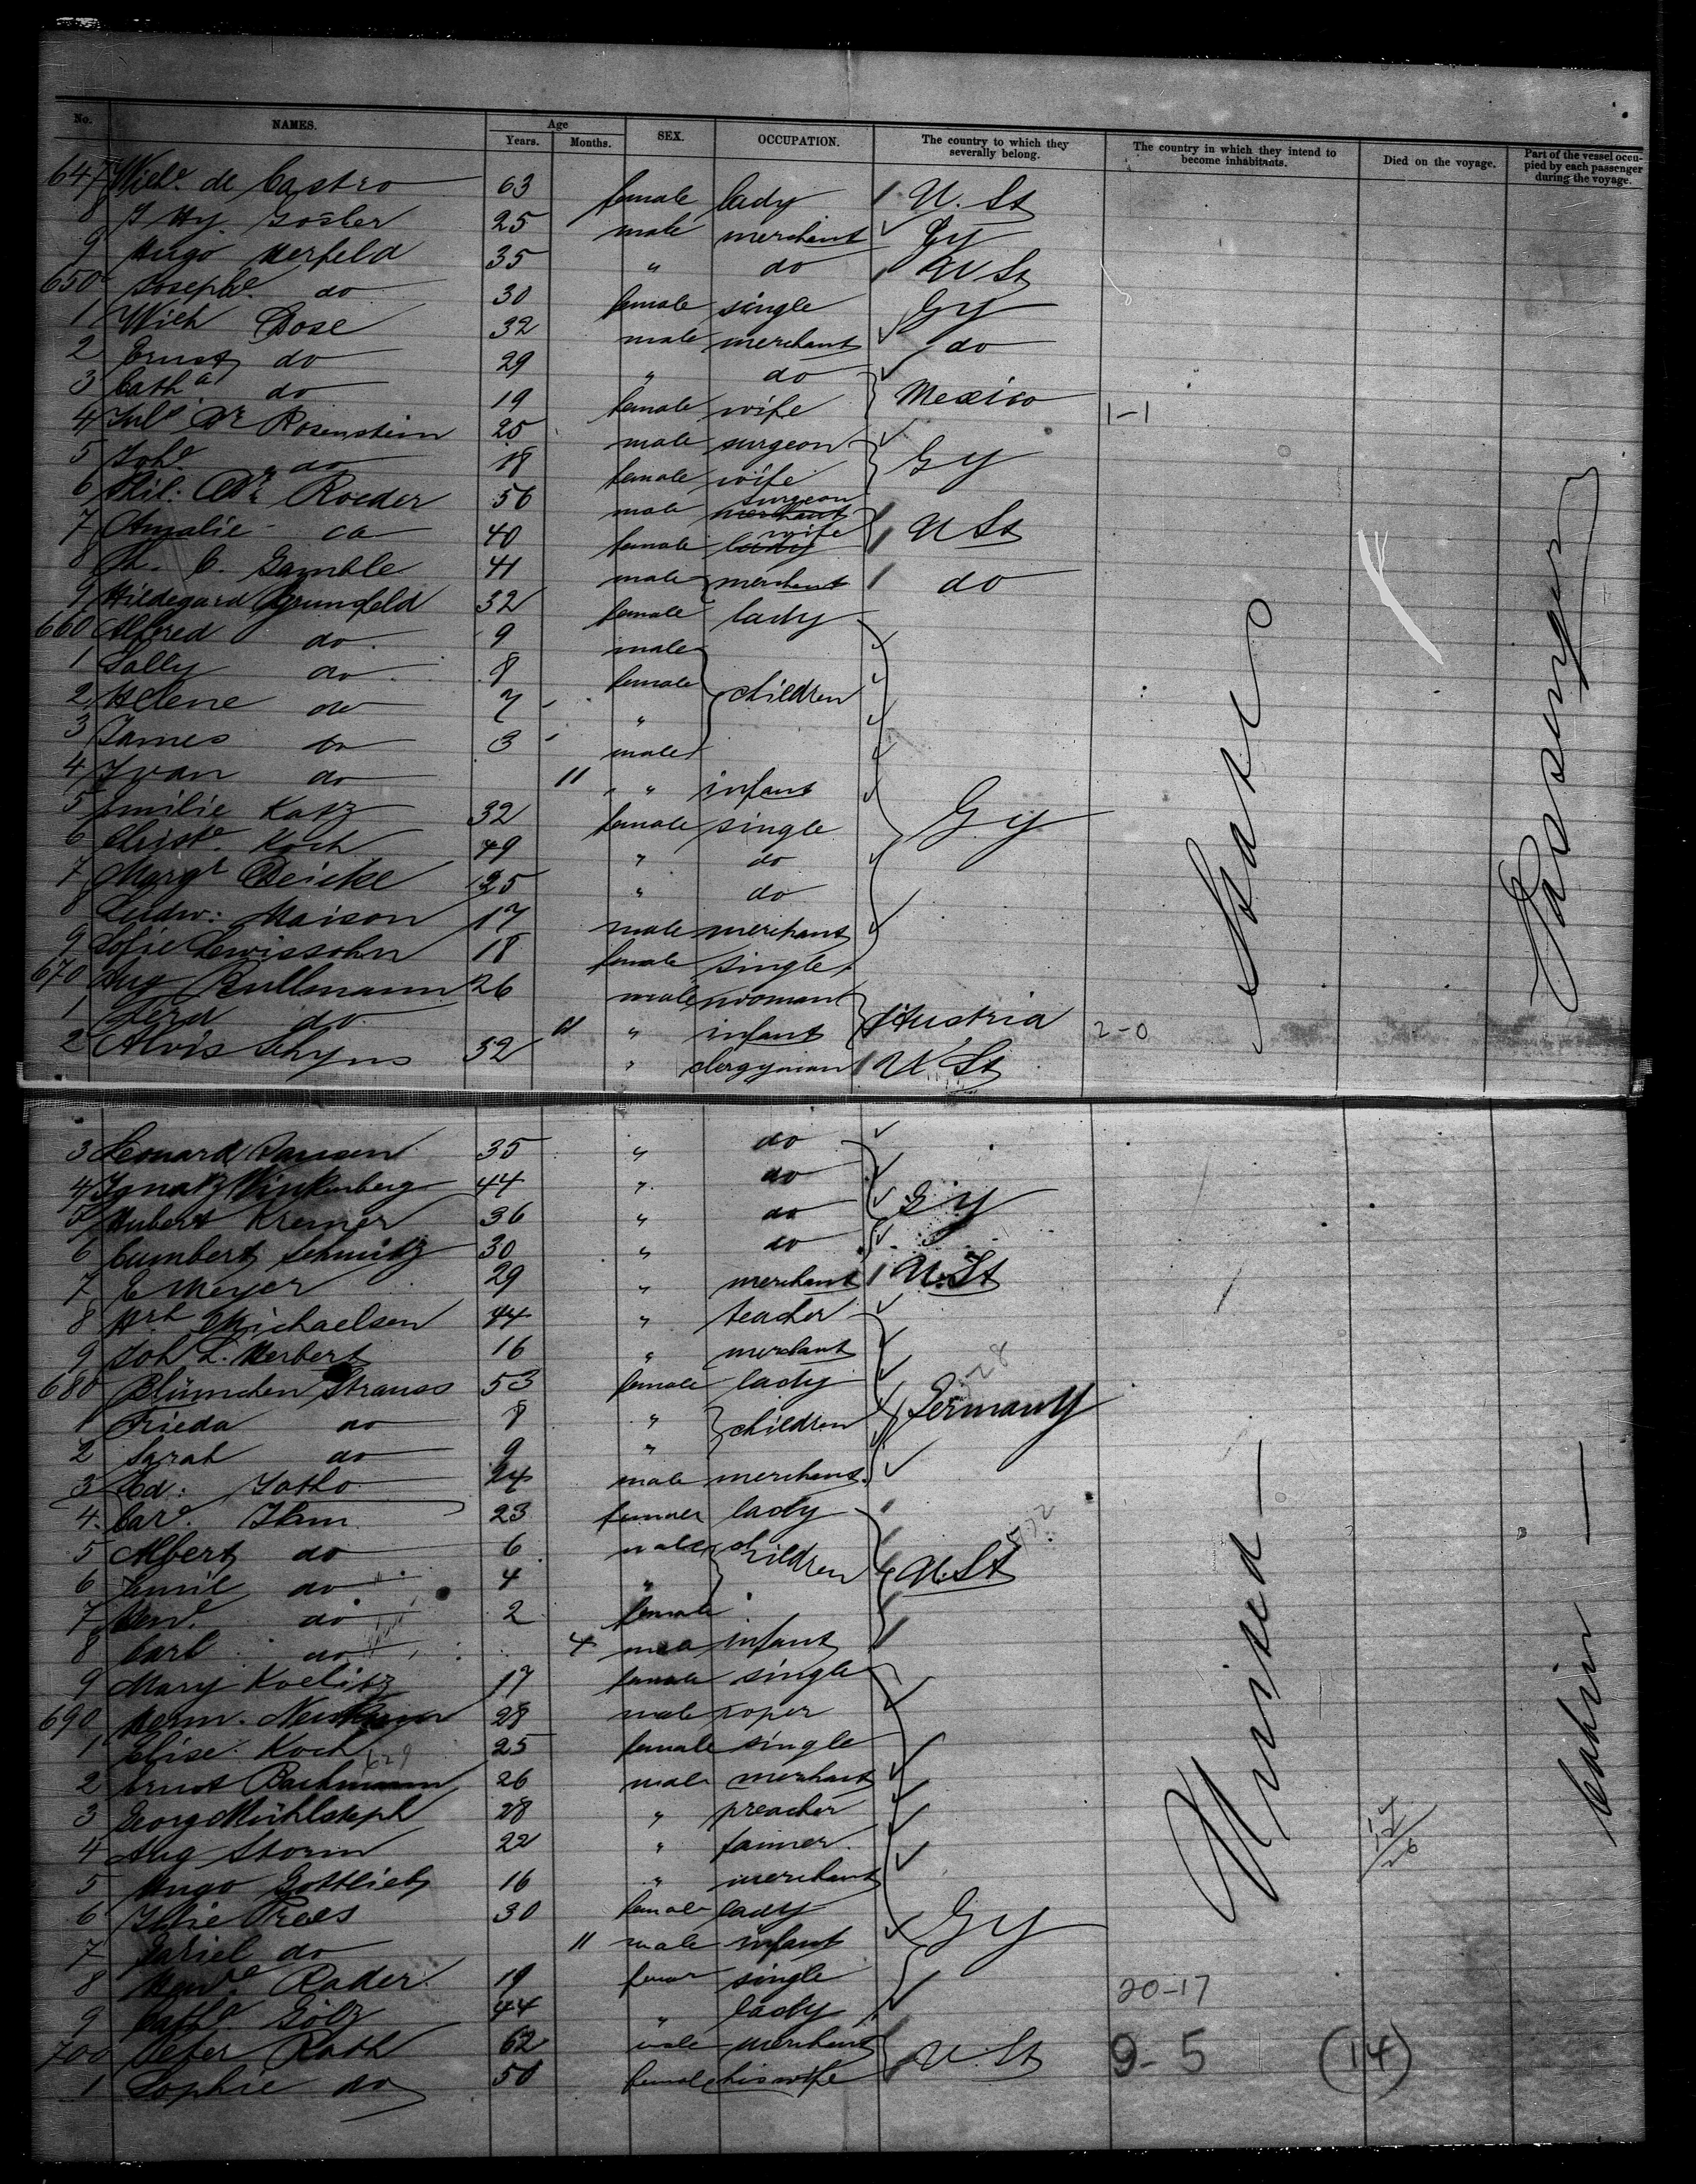 No. NAMES. Age Years. Months. SEX. OCCUPATION. The country to which they severally belong. The country in which they intend to become inhabitants. Died on the voyage. Part of the vessel occupied by each passenger during the voyage.
647 Wilh.e de Castro 63 female lady U. St
8 J Hy. Gosler 25 male merchant Gy
9 Hugo Herfeld 35 " do U St
650 Josephe. do 30 female single Gy
1 Wilh Dose 32 male merchant do
2 Ernst do 29 " do
3 Cath a do 19 female wife Mexico 1-1
4 Jul Dr Rosenstein 25 male surgeon
5 Joh.e do 18 female wife Gy
6 Phil. Dr. Roeder 56 male merchant surgeon
7 Amalie do 40 female lady wife U St
8 C. Gamble 41 male merchant do
9 Hildegard Grunfeld 32 female lady
660 Alfred do. 9 male
1 Sally do 8 female children
2 Helene do 7 "
3 James do 3 male
4 Ivan do 11 " infant
5 Emilie Katz 32 female single Gy
6 Christe. Koch 49 " do
7 Margt Deicke 25 " do
8 Ludw: Maison 17 male merchant
9 Sofie Lewissohn 18 female single
670 Aug Bullmann 26 male woman
1 Ferd do 11 " infant Austria 2-0
2 Alvis Schyns 32 " clergyman U St
3 Leonard Jansen 35 " do
4 Ignatz Vinkenberg 44 " do
5 Hubert Kremer 36 " do Gy
6 Cumbert Schmitz 30 " do
7 E Meyer 29 " merchant U. St
8 Michaelsen 44 " teacher
9 Joh L. Herbert 16 " merchant
680 Blümchen Strauss 53 female lady
1 Frieda do 8 " children Germany
2 Sarah do 9 "
3 Ed: Jotho 24 male merchant
4. Care. Ihm 23 female lady
5 Albert do 6 male children
6 Emil do 4 " U. St
7 Hene. do 2 female
8 Carl do 4 male infant
9 Mary Koelitz 17 female single
690 Herm. 28 male roper
1 Elise Koch 25 female single
2 Ernst Bachmann 26 male merchant
3 Georg Mühlsteph 28 " preacher
4 Aug Storm 22 " farmer
5 Hugo Gottlieb 16 " merchant
6 Julie Drees 30 female lady
7 do 11 male infant Gy
8 Henre Rader 19 female single 20-17
9 Cathe Götz 44 " lady
700 Peter Rath 62 male merchant U. St 9-5 (14)
1 Sophie do 50 female his wife
United States
Cabin Passenger